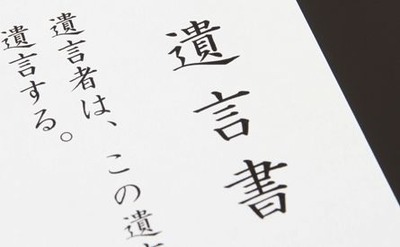 遺言書
遺言者は、この遺
遺言する。